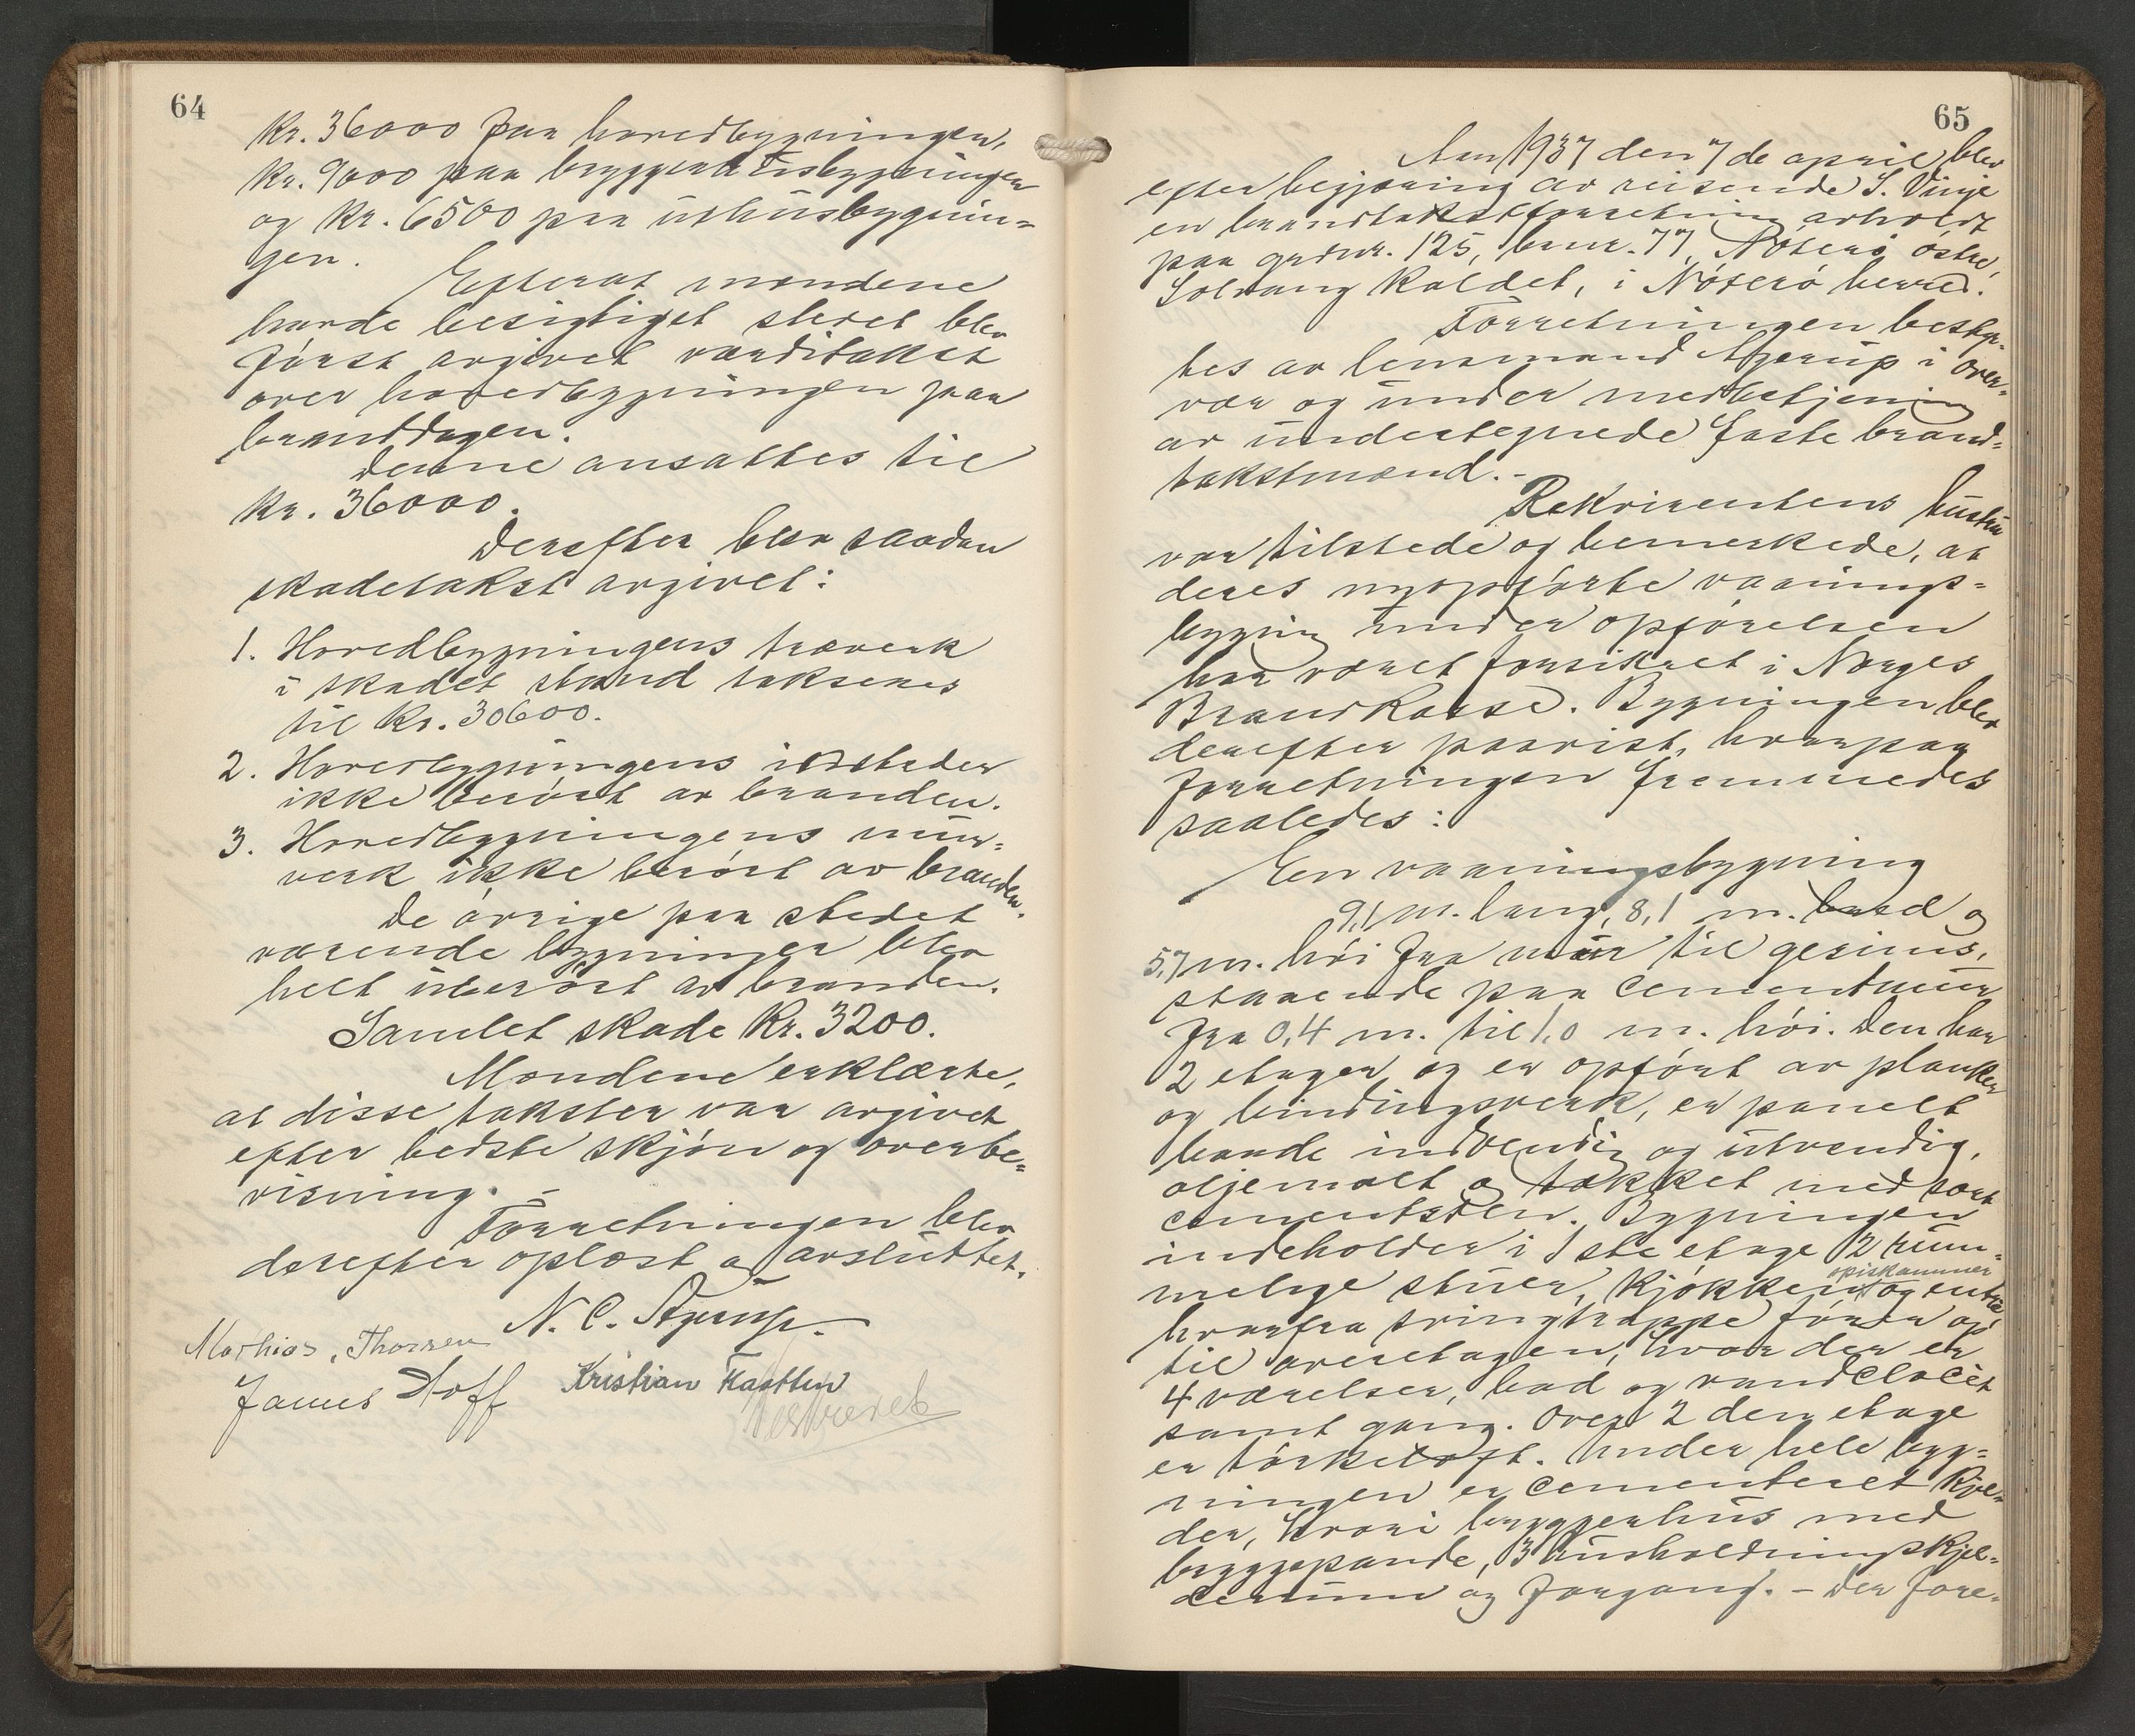 64
Kr. 36000 paa hovedbygningen,
Kr. 9000 paa bryggerhusbygningen
og Kr. 6500 paa uthusbygnin-
gen.
Efterat mændene
havde besigtiget stedet blev
først avgivet værditakst
over hovedbygningen paa
branddagen.
Denne ansattes til
Kr. 36000.
Derefter blev saadan
skadetakst avgivet:
1. Hovedbygningens træverk
i skadet stand takseres
til Kr. 30600.
2. Hovedbygningens ildsteder
ikke berørt av branden.
3. Hovedbygningens mur-
verk ikke berørt av branden.
De øvrige paa stedet
værende bygninger blev
helt uberørt av branden.
Samlet skade Kr. 3200.
Mændene erklærte,
at disse takster var avgivet
efter bedste skjøn og overbe-
visning. -
Forretningen blev
derefter oplæst og avsluttet.
N. C. Agerup.
Mathias, Thorsen
James Hoff Kristian
Beskrevet
65
Aar 1937 den 7de april blev
efter begjæring av reisende S. Vinje
en brandtakstforretning avholdt
paa gardnr. 125, brnr. 77, Nøterø østre,
Solvang kaldet, i Nøterø herred.
Forretningen besty-
tes av lensmand Agerup i over-
vær og under medbetjening
av undertegnede faste brand-
takstmænd. -
Rekvirentens hustru
var tilstede og bemerkede, at
deres nyopførte vaanings-
bygning under opførelsen
har været forsikret i Norges
Brandkasse. Bygningen blev
derefter paavist, hvorpaa
forretningen fremmedes
saaledes:
En vaaningsbygning
9,1 m. lang, 8,1 m. bred og
5,7 m. høi fra mur til gesims,
staaende paa cementmur
fra 0,4 m. til 1,0 m. høi. Den har
2 etager og er opført av planker
og bindingsverk, er panelt
baade indvendig og utvendig,
oljemalt og tækket med sort
cementsten. Bygningen
indeholder i 1ste etage 2 rum-
melige stuer, kjøkken, spiskammer og entre
hvorfra svingtrappe fører op
til overetagen, hvor der er
4 værelser, bad og vandclocet
samt gang. Over 2den etage
er tørkeloft. Under hele byg-
ningen er cementeret kjel-
der, hvori bryggerhus med
bryggepande, 3 husholdningskjel-
derrum og forgang. - Der fore-